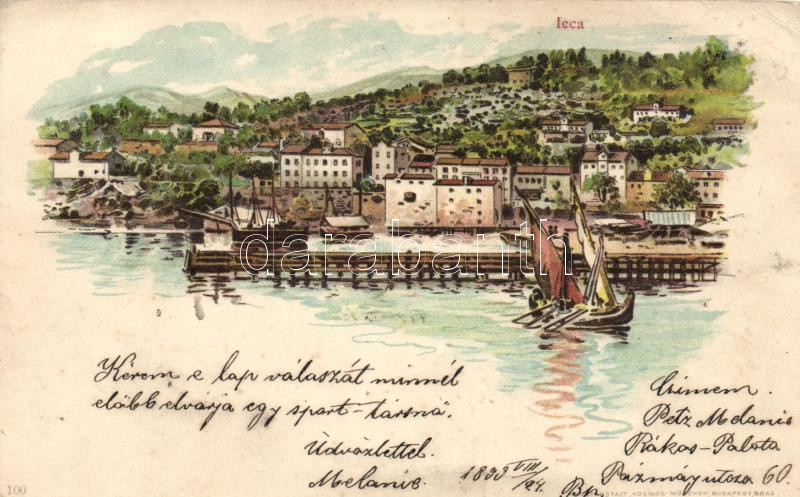 Icca
darabanth
Kérem e lap válaszát minnél
előbb elvárja egy sport-társnő.
Üdvözlettel.
Melanie.
1899 VIII/24.
Czimem.
Petz Melanie
Rákos-Palota
Pázmány utcza 60.
Bp.
100
KOSMOS MÜNCHEN, BUDAPEST, GRAZ.